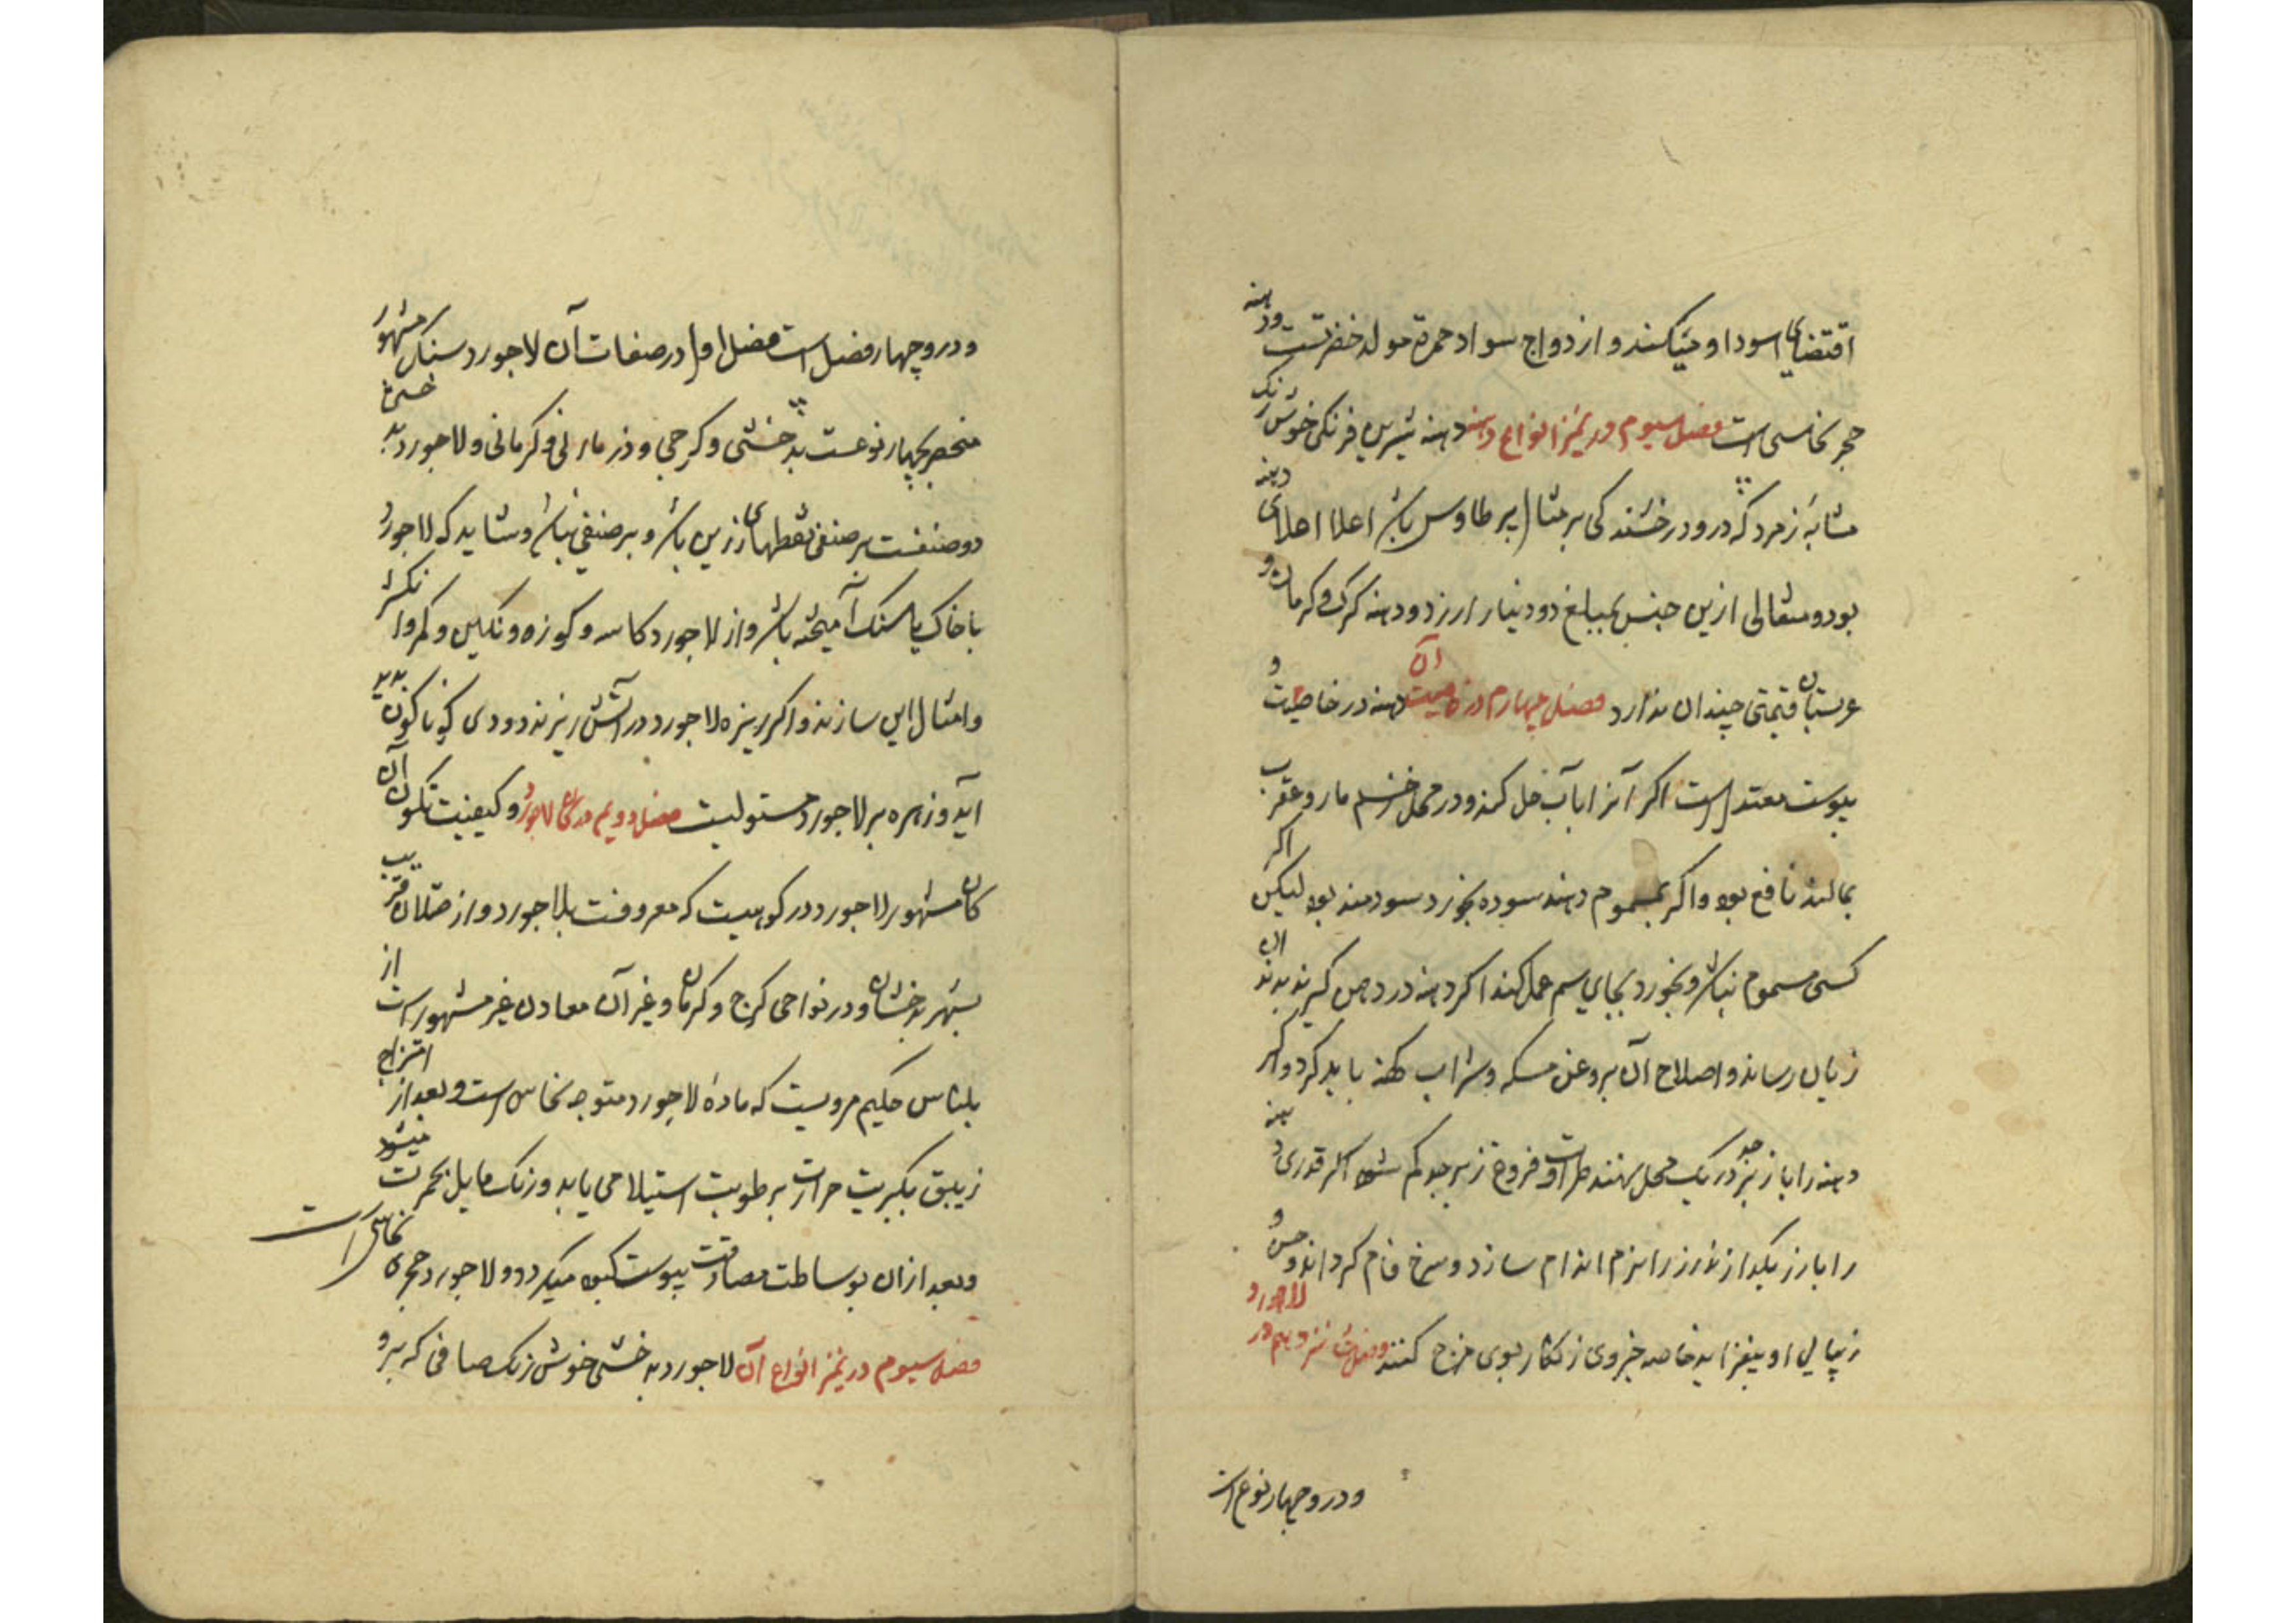 اقتضای اسوداو میکند و از دواج سواد حمرة مولد خضرتست ودهنه
حجر نحاسی است فصل سیوم در تمیز انواع دهنه دهنه شیرین فرنکی خوش رنک
مشابه زمرد که درو درخشندکی بر مثال پر طاوس باشد اعلا اعلای دهنه
بود و مثقالی ازین جنس بمبلغ دو دینار ارزد و دهنه کرک و کرمان و
عربستان قیمتی چندان ندارد فصل چهارم در خاصیت آن دهنه در خاصیت و
یبوست معتدل است اکر آنرا باب حل کنند و در محل زخم مار و عقرب
بمالند نافع بود و اکر بمسموم دهند سوده بخورد سودمند بود لیکن اکر
کسی مسموم نباشد و بخورد بجای سم عمل کند اکر دهنه در دهن کیرند بدندان
زیان رساند و اصلاح آن بروغن مسکه و شراب کهنه باید کرد و اکر
دهنه را با زبرجد در یک محل نهند طراوت و فروغ زبرجد کم شود اکر قدری دهنه
را با زر بکدازند زر را نرم اندام سازد و سرخ فام کرداند و حسن و
زیبایی او بیفزاید خاصه جزوی زنکار بوی مزج کنند فصل شانزدهم در لاجورد
ودرو چهار نوع است
ودرو چهار فصل است فصل اول در صفات آن لاجورد سنک مشهور
منحصر بچهار نوعست بدخشی و کرجی و دزماری و کرمانی و لاجورد بدخشی
دو صنفست بر صنفی نقطهای زرین باشد و بر صنفی نباشد و شاید که لاجورد
با خاک یا سنک آمیخته باشد و از لاجورد کاسه و کوزه و نکین و کمر و انکشتر
و امثال این سازند و اکر ریزه لاجورد در آتش ریزند دودی کوناکون پدید
آید و زهره بر لاجورد مستولیست فصل دویم در کان لاجورد و کیفیت تکون آن
کان مشهور لاجورد در کوهیست که معروفست بلاجورد و از ختلان قریب
بشهر بدخشان و در نواحی کرج و کرمان و غیر آن معادن غیر مشهور است از
بلیناس حکیم مرویست که ماده لاجورد متوجه نحاس است و بعد از امتزاج
زیبق بکبریت حرارت بر طوبت استیلا می یابد و رنک مایل بحمرت میشود
و بعد ازان بوساطت مصادقت یبوست کبود میکردد و لاجورد حجری نحاسی است
فصل سیوم در تمیز انواع آن لاجورد بدخشی خوش رنک صافی که برو